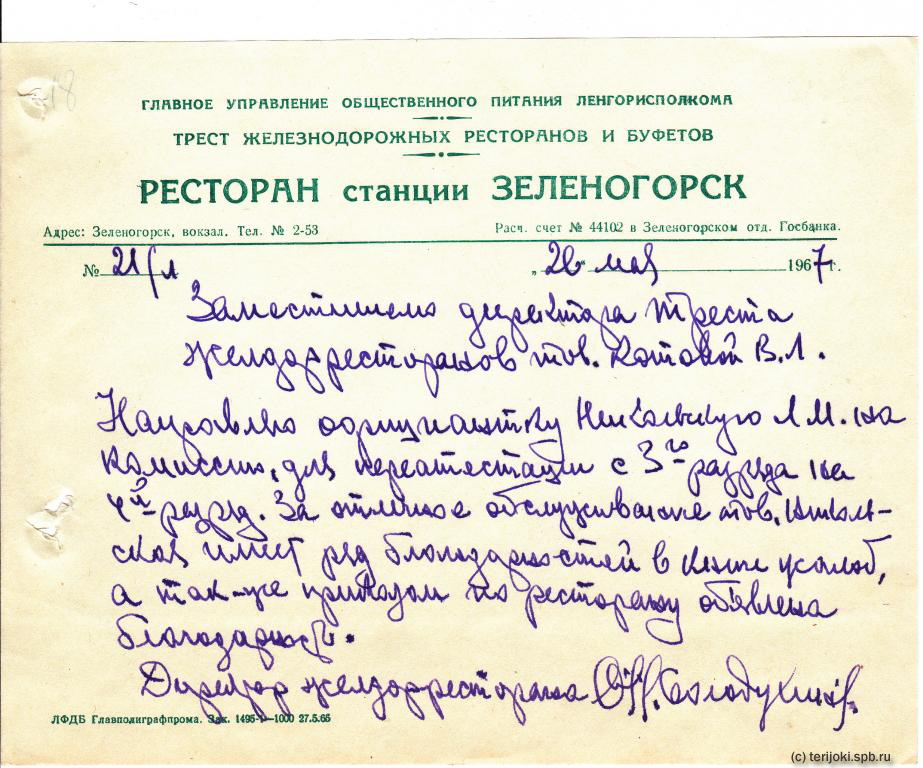 18
ГЛАВНОЕ УПРАВЛЕНИЕ ОБЩЕСТВЕННОГО ПИТАНИЯ ЛЕНГОРИСПОЛКОМА
ТРЕСТ ЖЕЛЕЗНОДОРОЖНЫХ РЕСТОРАНОВ И БУФЕТОВ
РЕСТОРАН станции ЗЕЛЕНОГОРСК
Адрес: Зеленогорск, вокзал. Тел. № 2-53 Расч. счет № 44102 в Зеленогорском отд. Госбанка.
№ 21/л „26" мая 1967 г.
Заместителю директора треста
желдорресторанов тов. Котовой В.Л.
Направляю официантку Никольскую Л.М. на
комиссию, для переатестации с 3го разряда на
4й разряд. За отличное обслуживание тов. Николь-
ская имеет ряд благодарностей в книге жалоб,
а так-же приказом по ресторану об'явлена
благодарность.
Директор желдорресторана Солодухина
ЛФДБ Главполиграфпрома. Зак. 1495-р—1000 27.5.65
(c) terijoki.spb.ru